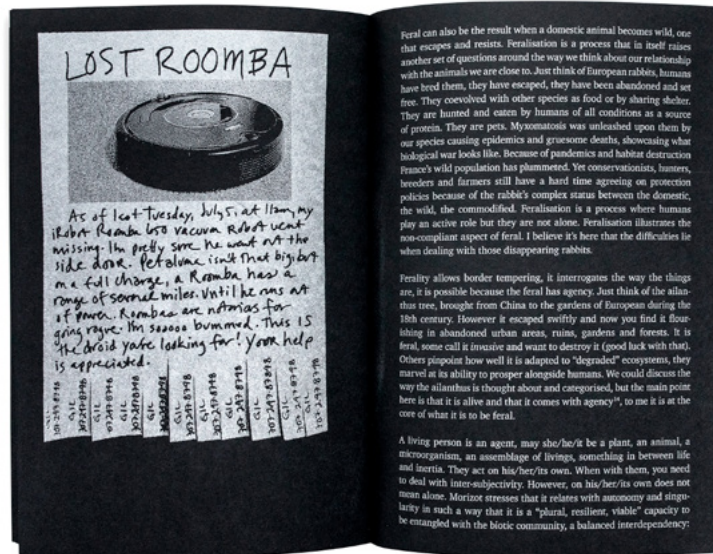 LOST ROOMBA
As of last Tuesday, July 5, at 11am, my
iRobot Roomba 650 vacuum Robot went
missing. I'm pretty sure he went out the
side door. Petaluma isn't that big, but
on a full charge, a Roomba has a
range of several miles. Until he runs out
of power. Roombas are notorias for
going rogue. I'm sooooo bummed. This IS
the droid you're looking for! Your help
is appreciated.
GIL
GIL
GIL
GIL
GIL
GIL
GIL
Feral can also be the result when a domestic animal becomes wild, one
that escapes and resists. Feralisation is a process that in itself raises
another set of questions around the way we think about our relationship
with the animals we are close to. Just think of European rabbits, humans
have bred them, they have escaped, they have been abandoned and set
free. They coevolved with other species as food or by sharing shelter.
They are hunted and eaten by humans of all conditions as a source
of protein. They are pets. Myxomatosis was unleashed upon them by
our species causing epidemics and gruesome deaths, showcasing what
biological war looks like. Because of pandemics and habitat destruction
France's wild population has plummeted. Yet conservationists, hunters,
breeders and farmers still have a hard time agreeing on protection
policies because of the rabbit's complex status between the domestic,
the wild, the commodified. Feralisation is a process where humans
play an active role but they are not alone. Feralisation illustrates the
non-compliant aspect of feral. I believe it's here that the difficulties lie
when dealing with those disappearing rabbits.
Ferality allows border tempering, it interrogates the way the things
are, it is possible because the feral has agency. Just think of the ailan-
thus tree, brought from China to the gardens of European during the
18th century. However it escaped swiftly and now you find it flour-
ishing in abandoned urban areas, ruins, gardens and forests. It is
feral, some call it invasive and want to destroy it (good luck with that).
Others pinpoint how well it is adapted to "degraded" ecosystems, they
marvel at its ability to prosper alongside humans. We could discuss the
way the ailanthus is thought about and categorised, but the main point
here is that it is alive and that it comes with agency, to me it is at the
core of what it is to be feral.
A living person is an agent, may she/he/it be a plant, an animal, a
microorganism, an assemblage of livings, something in between life
and inertia. They act on his/her/its own. When with them, you need
to deal with inter-subjectivity. However, on his/her/its own does not
mean alone. Morizot stresses that it relates with autonomy and singu-
larity in such a way that it is a "plural, resilient, viable" capacity to
be entangled with the biotic community, a balanced interdependency: